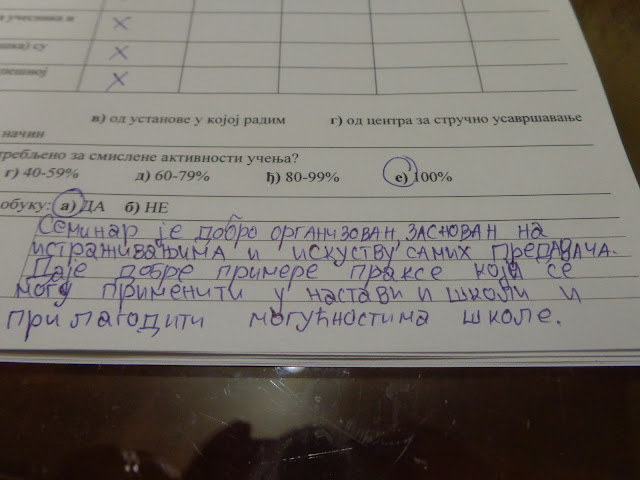 учесника и
х
шка) су
х
пешној
х
в) од установе у којој радим г) од центра за стручно усавршавање
начин
требљено за смислене активности учења?
г) 40-59% д) 60-79% ђ) 80-99% е) 100%
обуку: а) ДА б) НЕ
Семинар је добро организован, заснован на
истраживањима и искуству самих предавача.
Даје добре примере праксе која се
могу применити у настави и школи и
прилагодити могућностима школе.